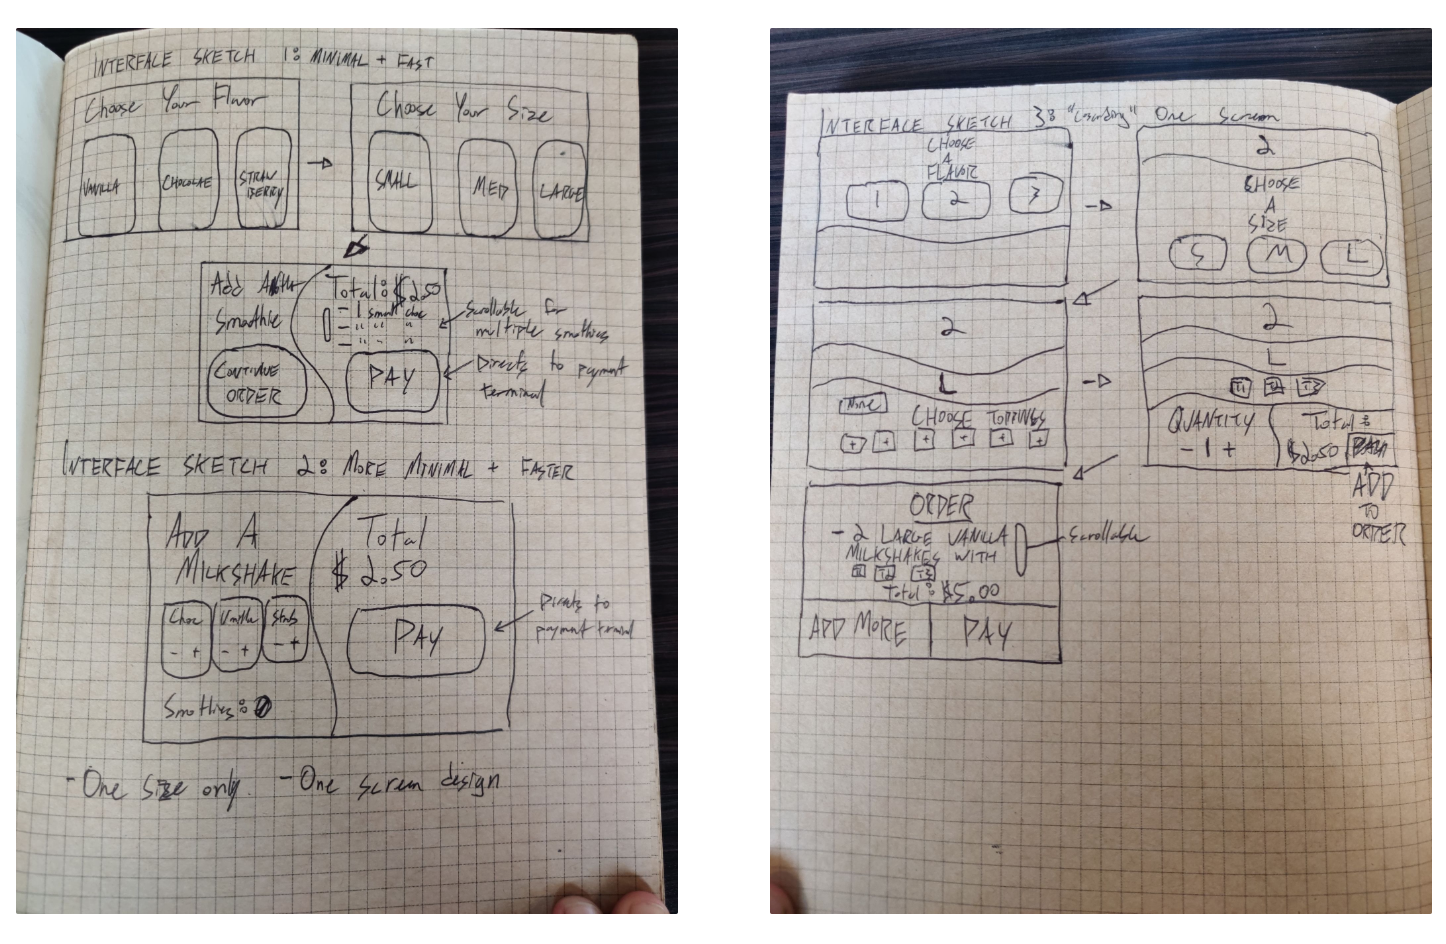 INTERFACE SKETCH 1: MINIMAL + FAST
Choose Your Flavor
VANILLA
CHOCOLAE
STRAW
BERRY
Choose Your Size
SMALL
MED
LARGE
Add
Smoothie
CONTINUE
ORDER
Total: $2.50
- 1 small choc
- " " "
- " " "
PAY
Scrollable for
multiple smothies
Directs to payment
terminal
INTERFACE SKETCH 2: MORE MINIMAL + FASTER
ADD A
MILKSHAKE
Choc
- +
Vanilla
- +
Strab
- +
Smothies: 0
Total
$ 2.50
PAY
Directs to
payment
- One size only
- One screen design
INTERFACE SKETCH 3: "Cascading" One Screen
CHOOSE
A
FLAVOR
1 2 3
2
CHOOSE
A
SIZE
S M L
2
L
None
CHOOSE TOPPINGS
+ + + + + +
2
L
T1 T2 T3
QUANTITY
- 1 +
Total:
$2.50
ADD
TO
ORDER
ORDER
- 2 LARGE VANILLA
MILKSHAKES WITH
T1 T2 T3
Total: $5.00
Scrollable
ADD MORE
PAY